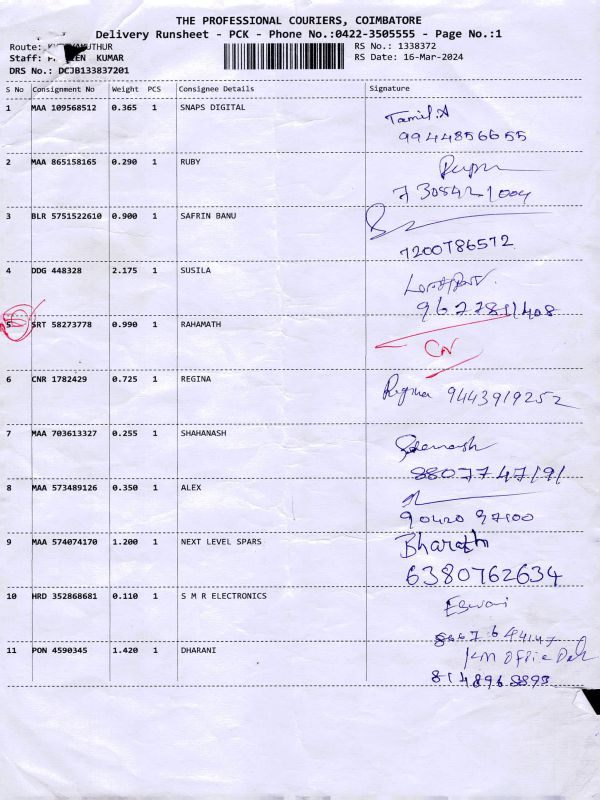 THE PROFESSIONAL COURIERS, COIMBATORE
Delivery Runsheet - PCK - Phone No.:0422-3505555 - Page No.:1
Route: RS No.: 1338372
Staff: KUMAR RS Date: 16-Mar-2024
DRS No.: DCJB133837201
S No Consignment No Weight PCS Consignee Details Signature
1 MAA 109568512 0.365 1 SNAPS DIGITAL
Tamil.A
9944856655
2 MAA 865158165 0.290 1 RUBY
3 BLR 5751522610 0.900 1 SAFRIN BANU
7200786572
4 DDG 448328 2.175 1 SUSILA
5 SRT 58273778 0.990 1 RAHAMATH
CN
6 CNR 1782429 0.725 1 REGINA
Regina 9443919252
7 MAA 703613327 0.255 1 SHAHANASH
8807747191
8 MAA 573489126 0.350 1 ALEX
90420 97100
9 MAA 574074170 1.200 1 NEXT LEVEL SPARS
Bharath
6380762634
10 HRD 352868681 0.110 1 S M R ELECTRONICS
11 PON 4590345 1.420 1 DHARANI
8148968893